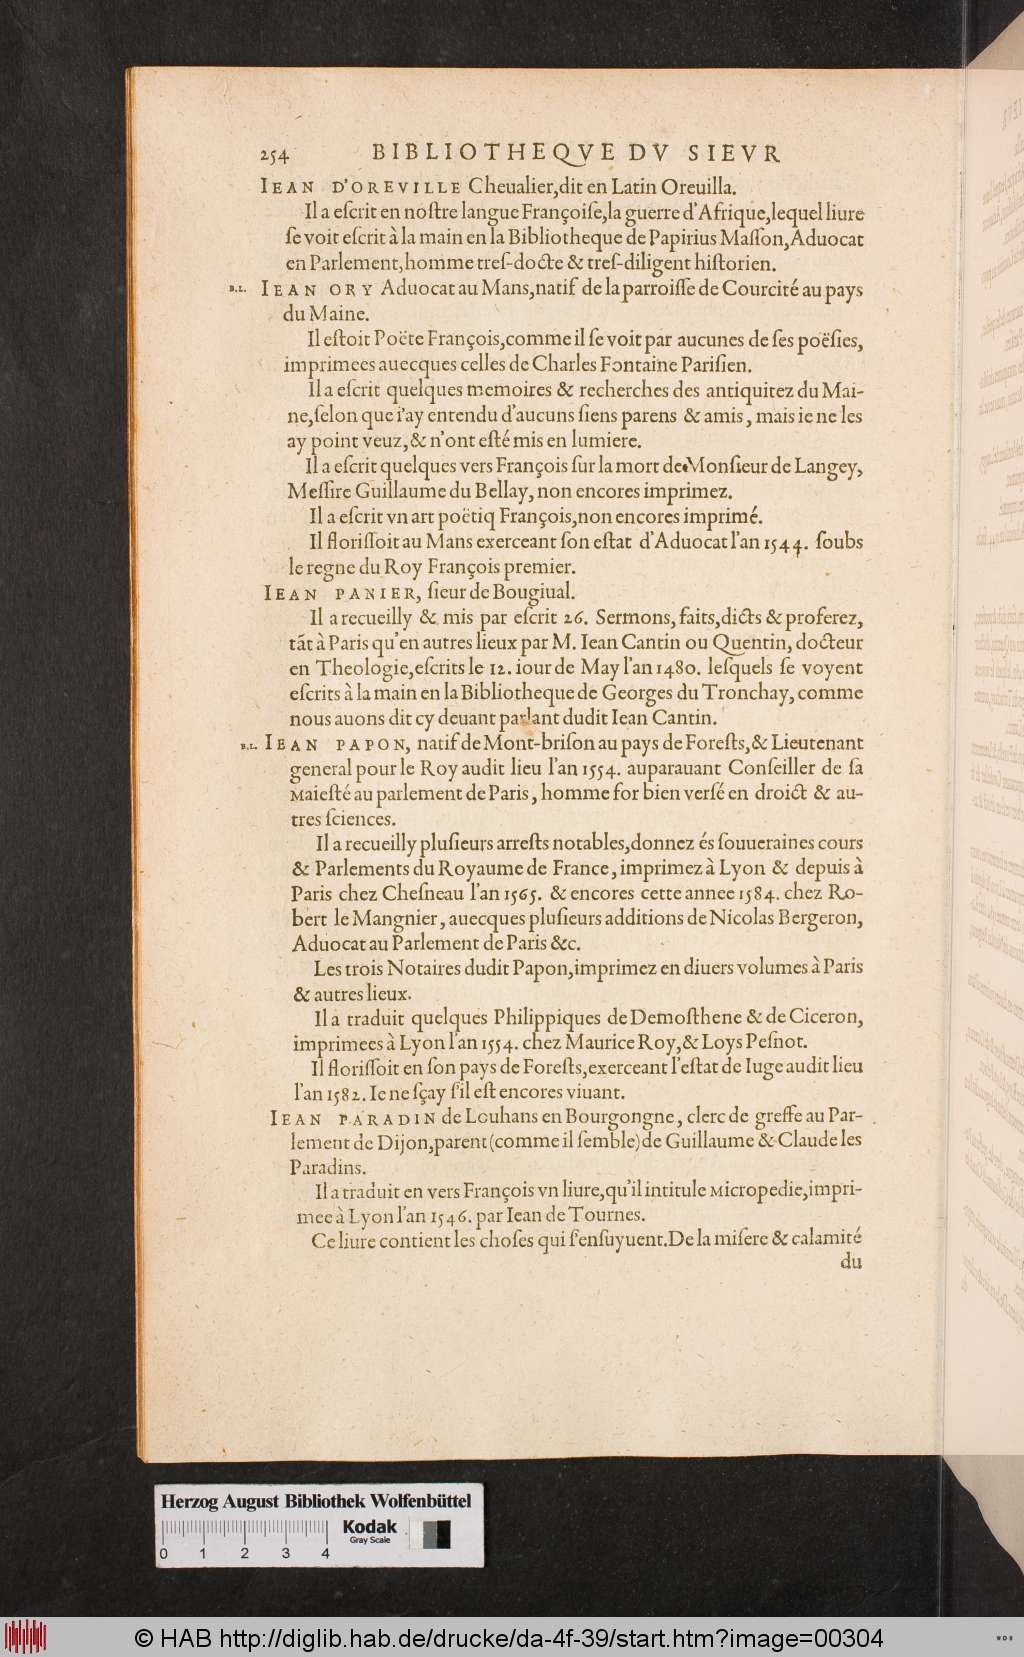 254 BIBLIOTHEQVE DV SIEVR
IEAN D'OREVILLE Cheualier,dit en Latin Oreuilla.
Il a eſcrit en noſtre langue Françoiſe,la guerre d'Afrique,lequel liure
ſe voit eſcrit à la main en la Bibliotheque de Papirius Maſſon,Aduocat
en Parlement,homme treſ-docte & treſ-diligent hiſtorien.
B.L. IEAN ORY Aduocat au Mans,natif de la parroiſſe de Courcité au pays
du Maine.
Il eſtoit Poëte François,comme il ſe voit par aucunes de ſes poëſies,
imprimees auecques celles de Charles Fontaine Pariſien.
Il a eſcrit quelques memoires & recherches des antiquitez du Mai-
ne,ſelon que i'ay entendu d'aucuns ſiens parens & amis, mais ie ne les
ay point veuz,& n'ont eſté mis en lumiere.
Il a eſcrit quelques vers François ſur la mort de Monſieur de Langey,
Meſſire Guillaume du Bellay, non encores imprimez.
Il a eſcrit vn art poëtiq François,non encores imprimé.
Il floriſſoit au Mans exerceant ſon eſtat d'Aduocat l'an 1544. ſoubs
le regne du Roy François premier.
IEAN PANIER, ſieur de Bougiual.
Il a recueilly & mis par eſcrit 26. Sermons, faits,dicts & proferez,
tãt à Paris qu'en autres lieux par M. Iean Cantin ou Quentin, docteur
en Theologie,eſcrits le 12. iour de May l'an 1480. leſquels ſe voyent
eſcrits à la main en la Bibliotheque de Georges du Tronchay, comme
nous auons dit cy deuant parlant dudit Iean Cantin.
B.L. IEAN PAPON, natif de Mont-briſon au pays de Foreſts,& Lieutenant
general pour le Roy audit lieu l'an 1554. auparauant Conſeiller de ſa
Maieſté au parlement de Paris, homme for bien verſé en droict & au-
tres ſciences.
Il a recueilly pluſieurs arreſts notables,donnez és ſouueraines cours
& Parlements du Royaume de France, imprimez à Lyon & depuis à
Paris chez Cheſneau l'an 1565. & encores cette annee 1584. chez Ro-
bert le Mangnier, auecques pluſieurs additions de Nicolas Bergeron,
Aduocat au Parlement de Paris &c.
Les trois Notaires dudit Papon,imprimez en diuers volumes à Paris
& autres lieux.
Il a traduit quelques Philippiques de Demoſthene & de Ciceron,
imprimees à Lyon l'an 1554. chez Maurice Roy,& Loys Peſnot.
Il floriſſoit en ſon pays de Foreſts,exerceant l'eſtat de Iuge audit lieu
l'an 1582. Ie ne ſçay ſ'il eſt encores viuant.
IEAN PARADIN de Louhans en Bourgongne, clerc de greffe au Par-
lement de Dijon,parent (comme il ſemble) de Guillaume & Claude les
Paradins.
Il a traduit en vers François vn liure,qu'il intitule Micropedie,impri-
mee à Lyon l'an 1546. par Iean de Tournes.
Ce liure contient les choſes qui ſ'enſuyuent.De la miſere & calamité
du
Herzog August Bibliothek Wolfenbüttel
Kodak
Gray Scale
0 1 2 3 4
© HAB http://diglib.hab.de/drucke/da-4f-39/start.htm?image=00304